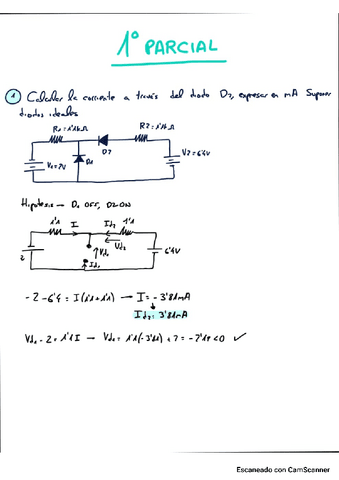 1º PARCIAL
1 Calcular la corriente a través del diodo D2, expresar en mA Suponer
diodos ideales
R1=1'1kΩ
R2=1'1kΩ
D2
V1=2V
D1
V2=6'4V
Hipótesis → D1 OFF, D2 ON
1'1 I Id2 1'1
2
Vd1
Vd2
6'4V
Id1
-2-6'4 = I(1'1+1'1) → I = -3'81mA
Id2 = 3'81mA
Vd1 - 2 = 1'1 I → Vd1 = 1'1(-3'81) + 2 = -2'19 < 0 ✓
Escaneado con CamScanner